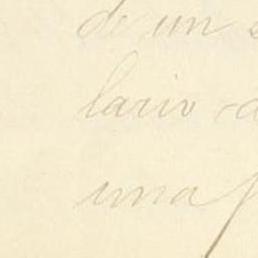 de un
lario
una